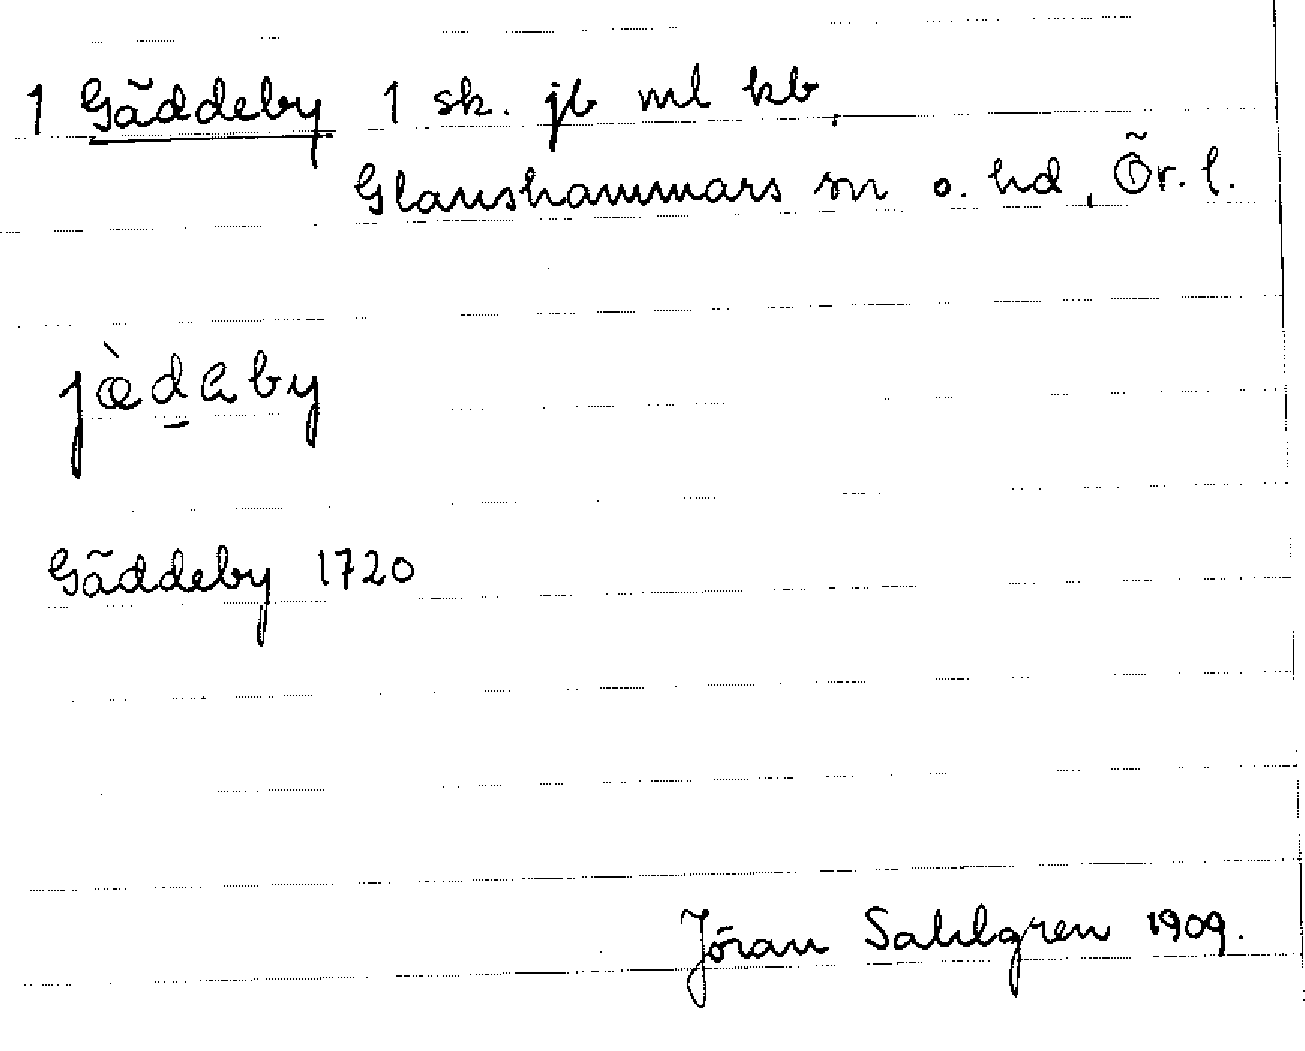 1 Gäddeby 1 sk. jb ml kb,
Glanshammars sn o. hd, Ör. l.
jæ̀d̲aby
Gäddeby 1720
Jöran Sahlgren 1909.